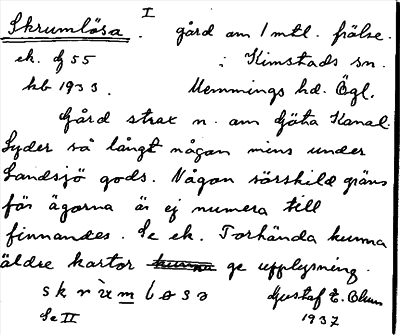 I
Skrumlösa . gård am 1 mtl. frälse.
ek. dj 55 i Kimstads sn.
kb 1933. Memmings hd. Ögl.
Gård strax n. am Göta Kanal.
Lyder så långt någon mins under
Landsjö gods. Någon särskild gräns
för ägorna är ej numera till
finnandes. Se ek. Torhända kunna
äldre kartor ge upplysning.
Gustaf E. Blum
Se II 1937